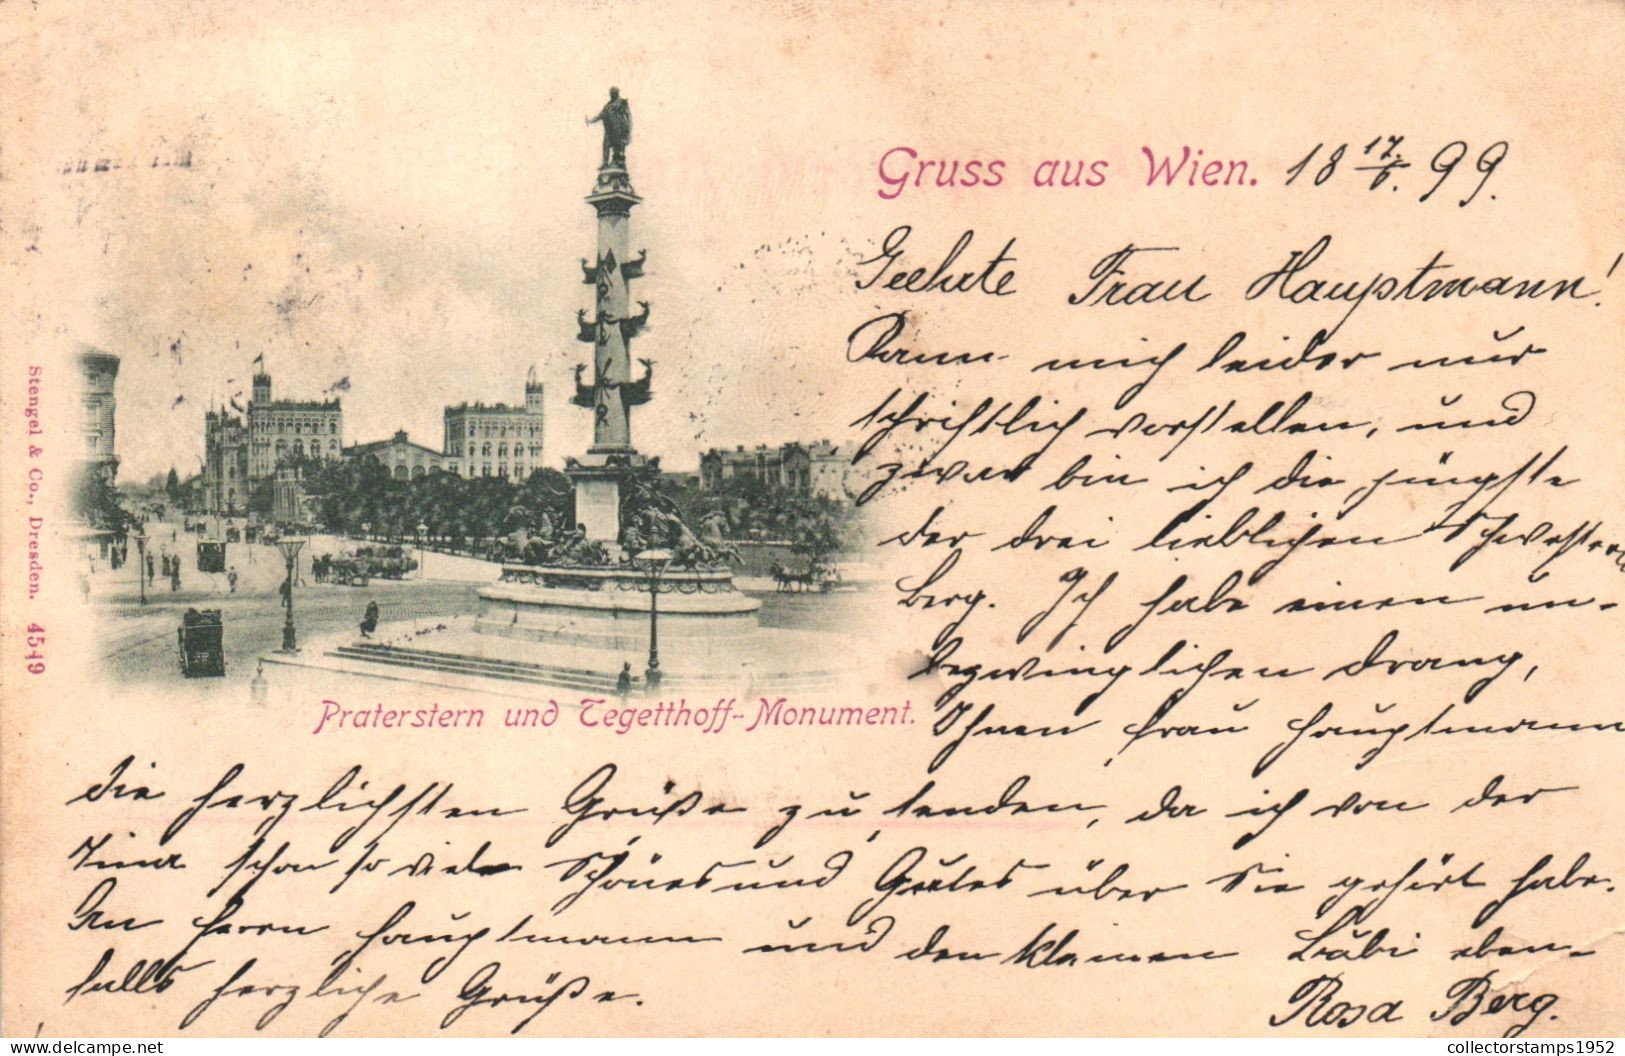 Gruss aus Wien. 18 17./6. 99.
Geehrte Frau Hauptmann!
Kann mich leider nur
schriftlich vorstellen, und
zwar bin ich die jüngste
der drei lieblichen Schwestern
Berg. Ich habe einen un-
bezwinglichen Drang,
Ihnen, Frau Hauptmann
die herzlichsten Grüße zu senden, da ich von der
schon so viele Schönes und Gutes über Sie gehört habe.
An Herrn Hauptmann und den kleinen Bubi eben-
falls herzliche Grüße.
Rosa Berg.
Praterstern und Tegetthoff-Monument.
Stengel & Co., Dresden. 4549
collectorstamps1952